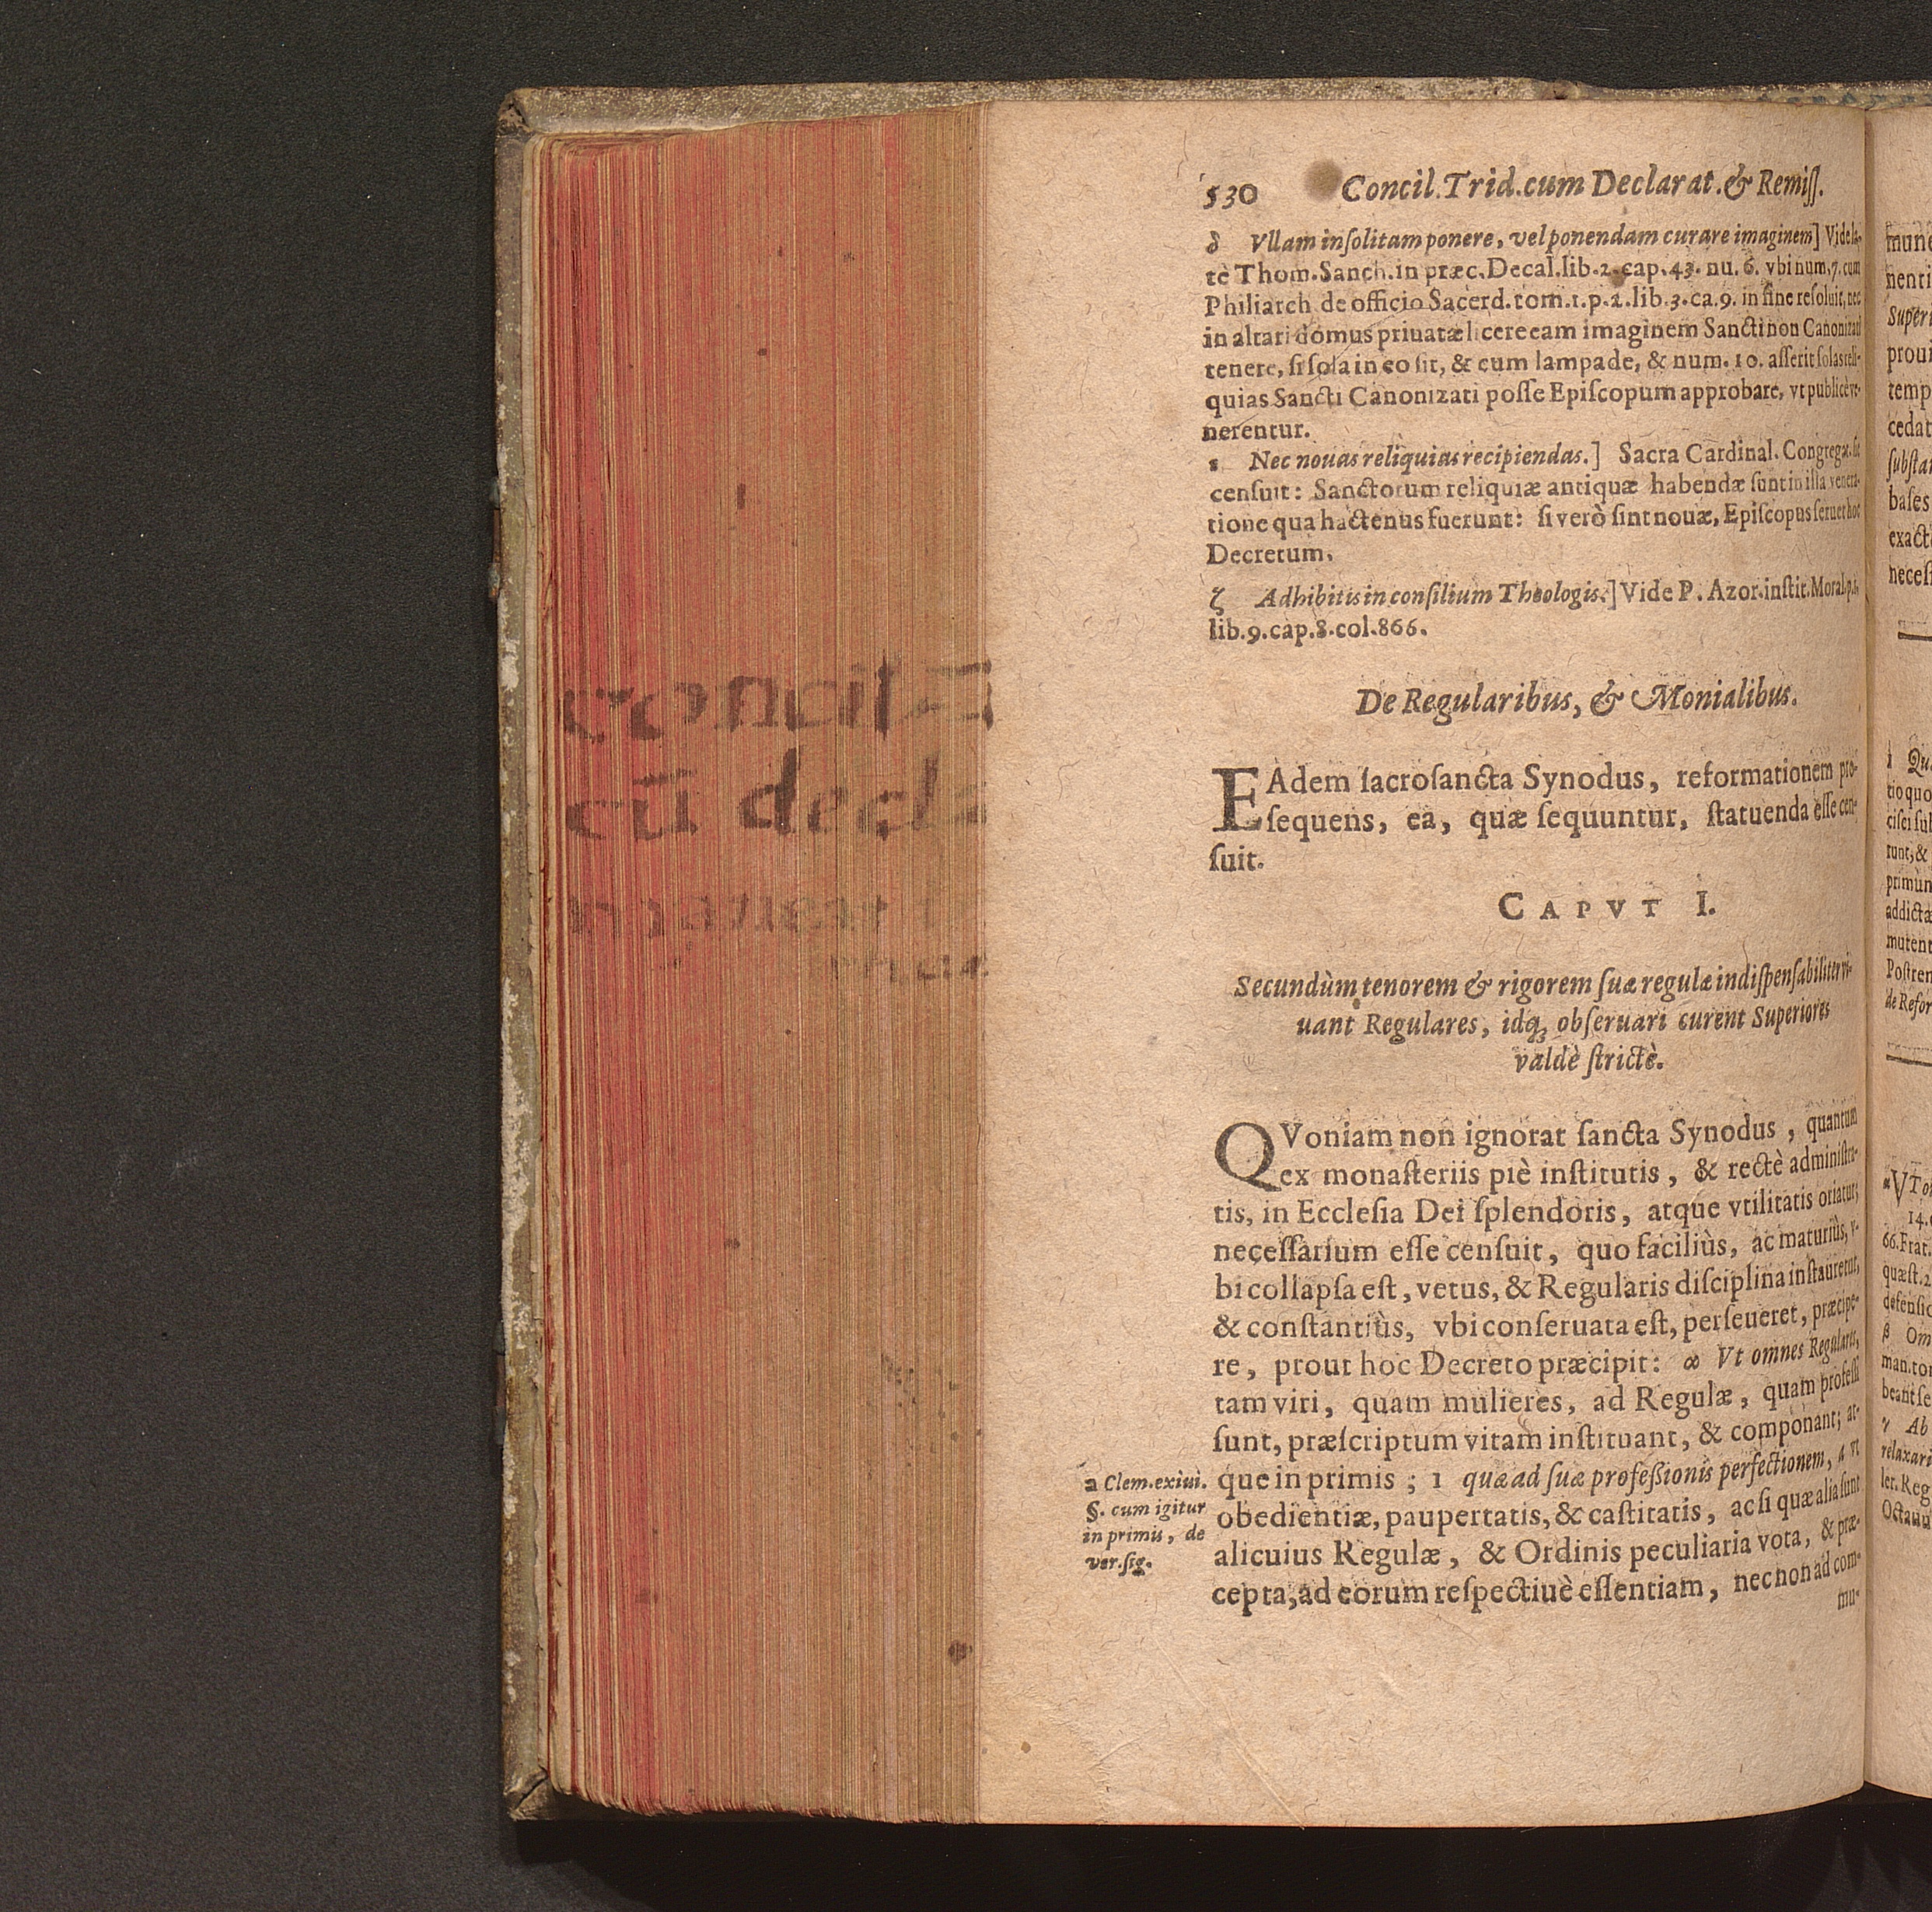 530 Concil. Trid. cum Declarat. & Remiſſ.
δ Vllam inſolitam ponere, vel ponendam curare imaginem] Vide la-
tè Thom. Sanch. in præc. Decal. lib. 2. cap. 43. nu. 6. vbi num. 7. cum
Philiarch de officio Sacerd. tom. 1. p. 2. lib. 3. ca. 9. in fine reſoluit, nec
in altari domus priuatæ licere eam imaginem Sancti non Canonizati
tenere, ſi ſola in eo ſit, & cum lampade, & num. 10. aſſerit ſolas reli-
quias Sancti Canonizati poſſe Epiſcopum approbare, vt publicè ve-
nerentur.
ε Nec nouas reliquias recipiendas.] Sacra Cardinal. Congregat. ſic
cenſuit: Sanctorum reliquiæ antiquæ habendæ ſunt in illa venera-
tione qua hactenus fuerunt: ſi verò ſint nouæ, Epiſcopus ſeruet hoc
Decretum.
ζ Adhibitis in conſilium Theologis.] Vide P. Azor. inſtit. Moral. p. 1.
lib. 9. cap. 8. col. 866.
De Regularibus, & Monialibus.
EAdem ſacroſancta Synodus, reformationem pro-
ſequens, ea, quæ ſequuntur, ſtatuenda eſſe cen-
ſuit.
CAPVT I.
Secundùm tenorem & rigorem ſuæ regulæ indiſpenſabiliter vi-
uant Regulares, idq; obſeruari curent Superiores
valdè ſtrictè.
QVoniam non ignorat ſancta Synodus, quantum
ex monaſteriis piè inſtitutis, & rectè adminiſtra-
tis, in Eccleſia Dei ſplendoris, atque vtilitatis oriatur;
neceſſarium eſſe cenſuit, quo faciliùs, ac maturiùs, v-
bi collapſa eſt, vetus, & Regularis diſciplina inſtauretur,
& conſtantiùs, vbi conſeruata eſt, perſeueret, præcipe-
re, prout hoc Decreto præcipit: α Vt omnes Regulares,
tam viri, quam mulieres, ad Regulæ, quam profeſſi
ſunt, præſcriptum vitam inſtituant, & componant; at-
que in primis; 1 quæ ad ſuæ profeßionis perfectionem, a vt
obedientiæ, paupertatis, & caſtitatis, ac ſi quæ alia ſunt
alicuius Regulæ, & Ordinis peculiaria vota, & præ-
cepta, ad eorum reſpectiuè eſſentiam, necnon ad com-
mu-
a Clem. exiui.
§. cum igitur
in primis, de
ver. ſig.
concil
cū decla
mune
nenti
Superi
proui
temp
cedat
ſubſtan
baſes
exact
neceſ
1 Qu
tio quo
ciſci ſul
runt, &
primùn
addictæ
mutent
Poſtren
de Refor
α VT o
14.
66. Frat.
quæſt. 2
defenſio
β Om
man. to
beant ſe
γ Ab
relaxari
ler. Reg
Octauu